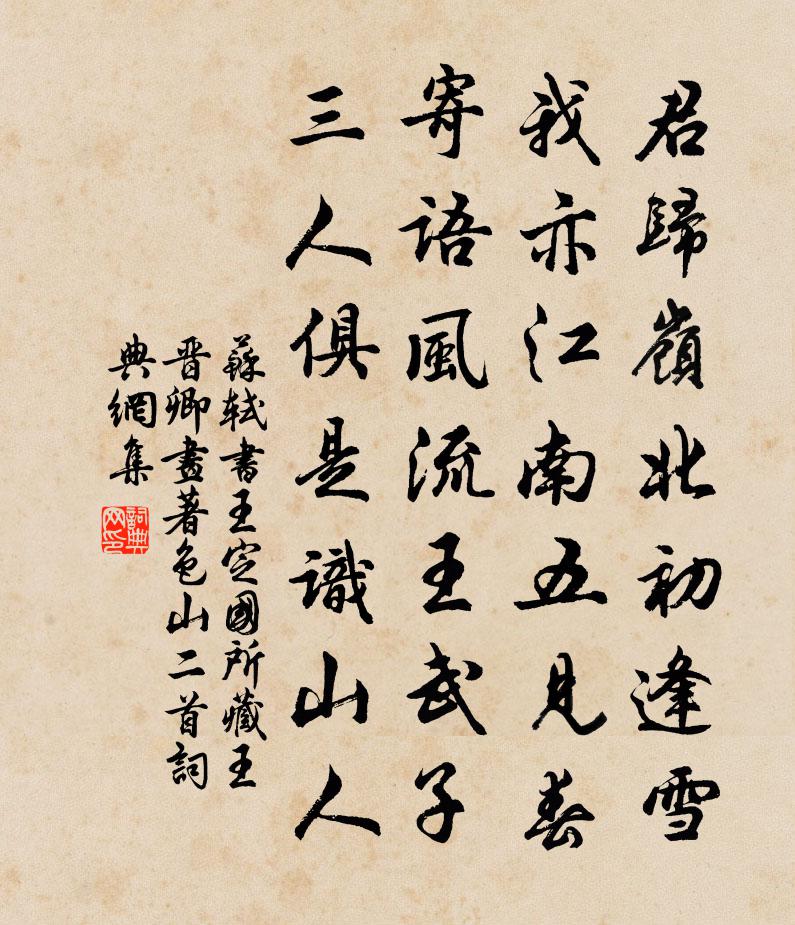 君歸嶺北初逢雪
我亦江南五見春
寄語風流王武子
三人俱是識山人
蘇軾書王定國所藏王
晉卿畫著色山二首詞
典網集
詞典
网印